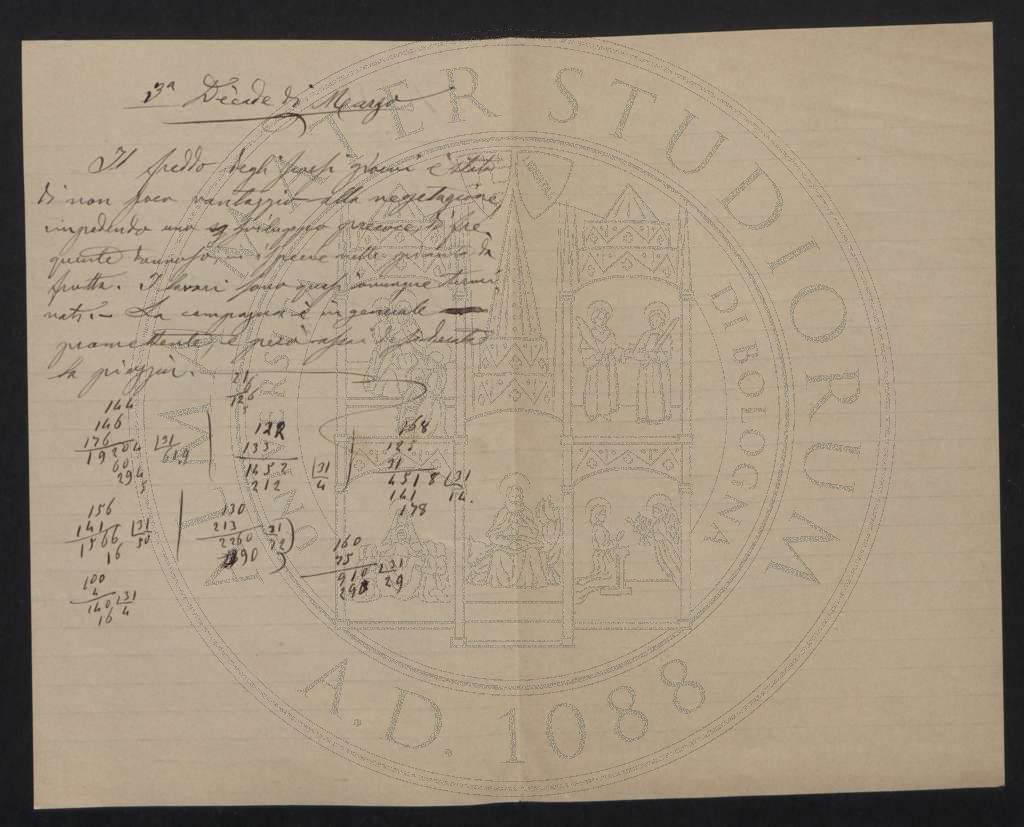 3ª Decade di Marzo
Il freddo degli scorsi giorni è stato
di non poco vantaggio alla vegetazione,
impedendo uno sviluppo precoce, di fre
quente dannoso, specie nelle piante da
frutta. I lavori sono quasi ovunque termi
nati. – La campagna è in generale
promettente, è però assai desiderata
la pioggia.
21
126
5
144
146
176
19204 31
60 619
294
5
122
133
1452 31
212 4
168
125
31
4518 31
141 14.
178
156
141
1566 31
16 50
130
213
2260 31
90 72
160
75
910 31
29
100
4
140 31
16 4
ALMA MATER STUDIORUM
UNIVERSITÀ DI BOLOGNA
A.D. 1088